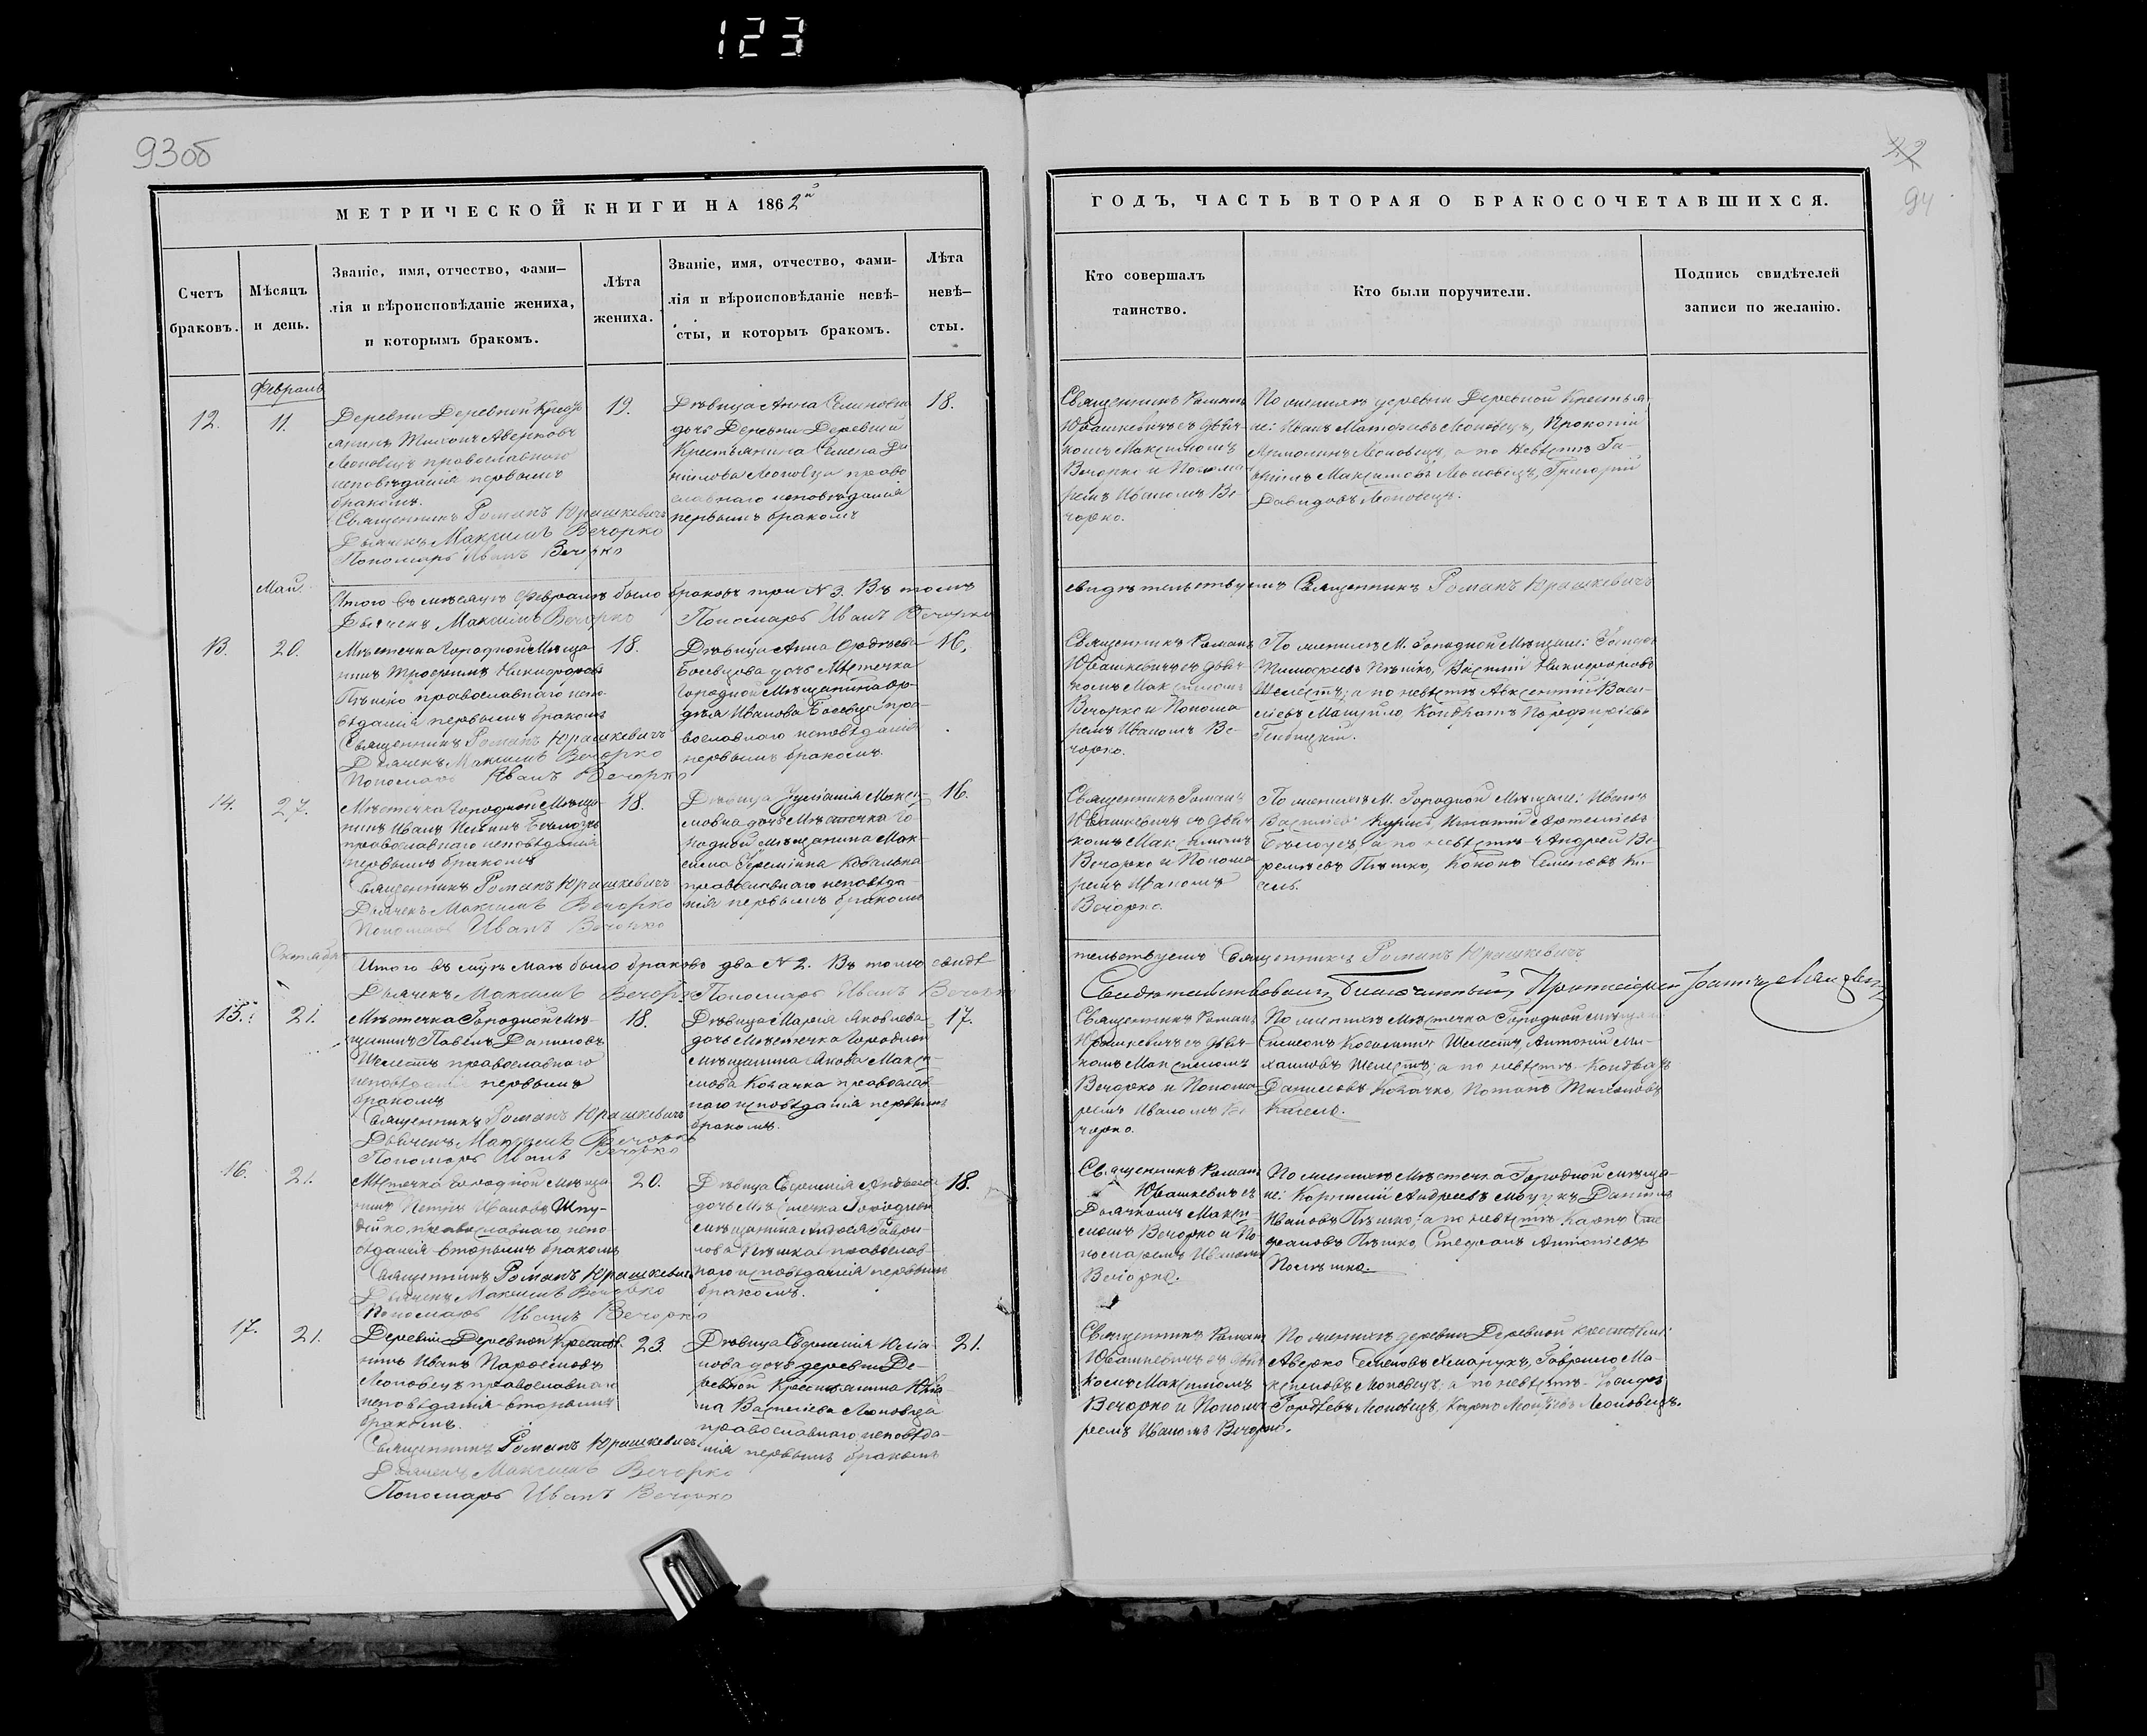 123
93об
22
94
МЕТРИЧЕСКОЙ КНИГИ НА 1862й
ГОДЪ, ЧАСТЬ ВТОРАЯ О БРАКОСОЧЕТАВШИХСЯ.
Счетъ
браковъ.
Мѣсяцъ
и день.
Званіе, имя, отчество, фами-
лія и вѣроисповѣданіе жениха,
и которымъ бракомъ.
Лѣта
жениха.
Званіе, имя, отчество, фами-
лія и вѣроисповѣданіе невѣ-
сты, и которыъ бракомъ.
Лѣта
невѣ-
сты.
Кто совершалъ
таинство.
Кто были поручители.
Подпись свидѣтелей
записи по желанію.
Февраль
12.
11.
Деревни Деревной Кресть
янинъ Тихонъ Аверковъ
Леоновецъ православнаго
исповѣданія первымъ
бракомъ.
Священникъ Романъ Юрашкевичъ
Дьячекъ Максимъ Вечорко
Пономарь Иванъ Вечорко
19.
Дѣвица Анна Семенова
дочь Деревни Деревной
Крестьянина Семена Да
нилова Леоновца право
славнаго исповѣданія
первымъ бракомъ
18.
Священникъ Романъ
Юрашкевичъ съ дьяч-
комъ Максимомъ
Вечорко и Понома-
ремъ Иваномъ Ве-
чорко.
По женихѣ деревни Деревной Крестья-
не: Иванъ Матфеевъ Леоновецъ, Прокопій
Леоновецъ, а по невѣстѣ Га-
вріилъ Максимовъ Леоновецъ, Григорій
Давидовъ Леоновецъ.
Май.
Итого въ мѣсяцѣ Февралѣ было браковъ три N 3. Въ томъ
свидѣтельствуемъ Священникъ Романъ Юрашкевичъ
Дьячекъ Максимъ Вечорко Пономарь Иванъ Вечорко
13.
20.
Мѣстечка Городной Мѣща
нинъ Трофимъ Никифоровъ
Пѣшко православнаго испо-
вѣданія первымъ бракомъ
Священникъ Романъ Юрашкевичъ
Дьячекъ Максимъ Вечорко
Пономарь Иванъ Вечорко
18.
Дѣвица Анна
дочь Мѣстечка
Городной Мѣщанина
Иванова пра-
вославнаго исповѣданія
первымъ бракомъ.
16.
Священникъ Романъ
Юрашкевичъ съ дьяч-
комъ Максимомъ
Вечорко и Понома
ремъ Иваномъ Ве-
чорко.
По женихѣ М. Городной Мѣщане:
Тимофеевъ Пѣшко, Никифоровъ
Шелестъ; а по невѣстѣ Авксентій Васи-
ліевъ Кондратъ Порфиріевъ
14.
27.
Мѣстечка Городной Мѣща-
нинъ Иванъ
православнаго исповѣданія
первымъ бракомъ
Священникъ Романъ Юрашкевичъ
Дьячекъ Максимъ Вечорко
Пономарь Иванъ Вечорко
18.
Дѣвица Іуліанія Макси-
мова дочь Мѣстечка Го-
родной мѣщанина Мак-
сима
православнаго исповѣда-
нія первымъ бракомъ
16.
Священникъ Романъ
Юрашкевичъ съ дьяч
комъ Максимомъ
Вечорко и Понома
ремъ Иваномъ
Вечорко.
По женихѣ М. Городной Мѣщане: Иванъ
Василіевъ Игнатій Артеміевъ
Бѣлоусъ а по невѣстѣ Андрей Ве-
Пѣшко, Кононъ Семеновъ Ки-
сель.
Октябрь
Итого въ мцѣ Маѣ было браковъ два N 2. Въ томъ свидѣ
тельствуемъ Священникъ Романъ Юрашкевичъ
Дьячекъ Максимъ Вечорко Пономарь Иванъ Вечорко
Свидетельствовалъ Благочинный, Протоіерей Іоаннъ
15.
21.
Мѣстечка Городной Мѣ-
щанинъ Павелъ Даниловъ
Шелестъ православнаго
исповѣданія первымъ
бракомъ
Священникъ Романъ Юрашкевичъ
Дьячекъ Максимъ Вечорко
Пономарь Иванъ Вечорко
18.
Дѣвица Марія Яковлева
дочь Мѣстечка Городной
мѣщанина Якова Макси-
мова Ковачка православ-
наго исповѣданія первымъ
бракомъ.
17.
Священникъ Романъ
Юрашкевичъ съ дьяч-
комъ Максимомъ
Вечорко и Понома-
ремъ Иваномъ Ве
чорко.
По женихѣ Мѣстечка Городной мѣщане
Шелестъ, Антоній Ми-
хаиловъ Шелестъ; а по невѣстѣ Кондратъ
Даниловъ Ковачко, Потапъ Тихоновъ
16.
21.
Мѣстечка Городной мѣща
нинъ Петръ Ивановъ Шпу-
дейко православнаго испо-
вѣданія вторымъ бракомъ
Священникъ Романъ Юрашкевичъ
Дьячекъ Максимъ Вечорко
Пономарь Иванъ Вечорко
20.
Дѣвица Евфимія Андреева
дочь Мѣстечка Городной
мѣщанина Андрея Гаври-
лова Пѣшка православ-
наго исповѣданія первымъ
бракомъ.
18.
Священникъ Романъ
Юрашкевичъ съ
Дьячкомъ Макси-
момъ Вечорко и По-
номаремъ Иваномъ
Вечорко.
По женихѣ Мѣстечка Городной мѣща-
не: Корнилій Андреевъ Данила
Ивановъ Пѣшко; а по невѣстѣ Карпъ Сте
фановъ Пѣшко, Стефанъ Антоніевъ
17.
21.
Деревни Деревной Крестья-
нинъ Иванъ
Леоновецъ православнаго
исповѣданія вторымъ
бракомъ.
Священникъ Романъ Юрашкевичъ
Дьячекъ Максимъ Вечорко
Пономарь Иванъ Вечорко
23.
Дѣвица Евфимія Юліа-
нова дочь деревни Де-
ревной Крестьянина Юліа
на Василіева Леоновца
православнаго исповѣда-
нія первымъ бракомъ
21.
Священникъ Романъ
Юрашкевичъ съ дьяч
комъ Максимомъ
Вечорко и Понома
ремъ Иваномъ Вечорко.
По женихѣ деревни Деревной крестьяне:
Аверко Семеновъ Хмарукъ, Гаврило Ма-
ксимовъ Леоновецъ; а по невѣстѣ
Гордѣевъ Леоновецъ, Карпъ Леоновецъ.